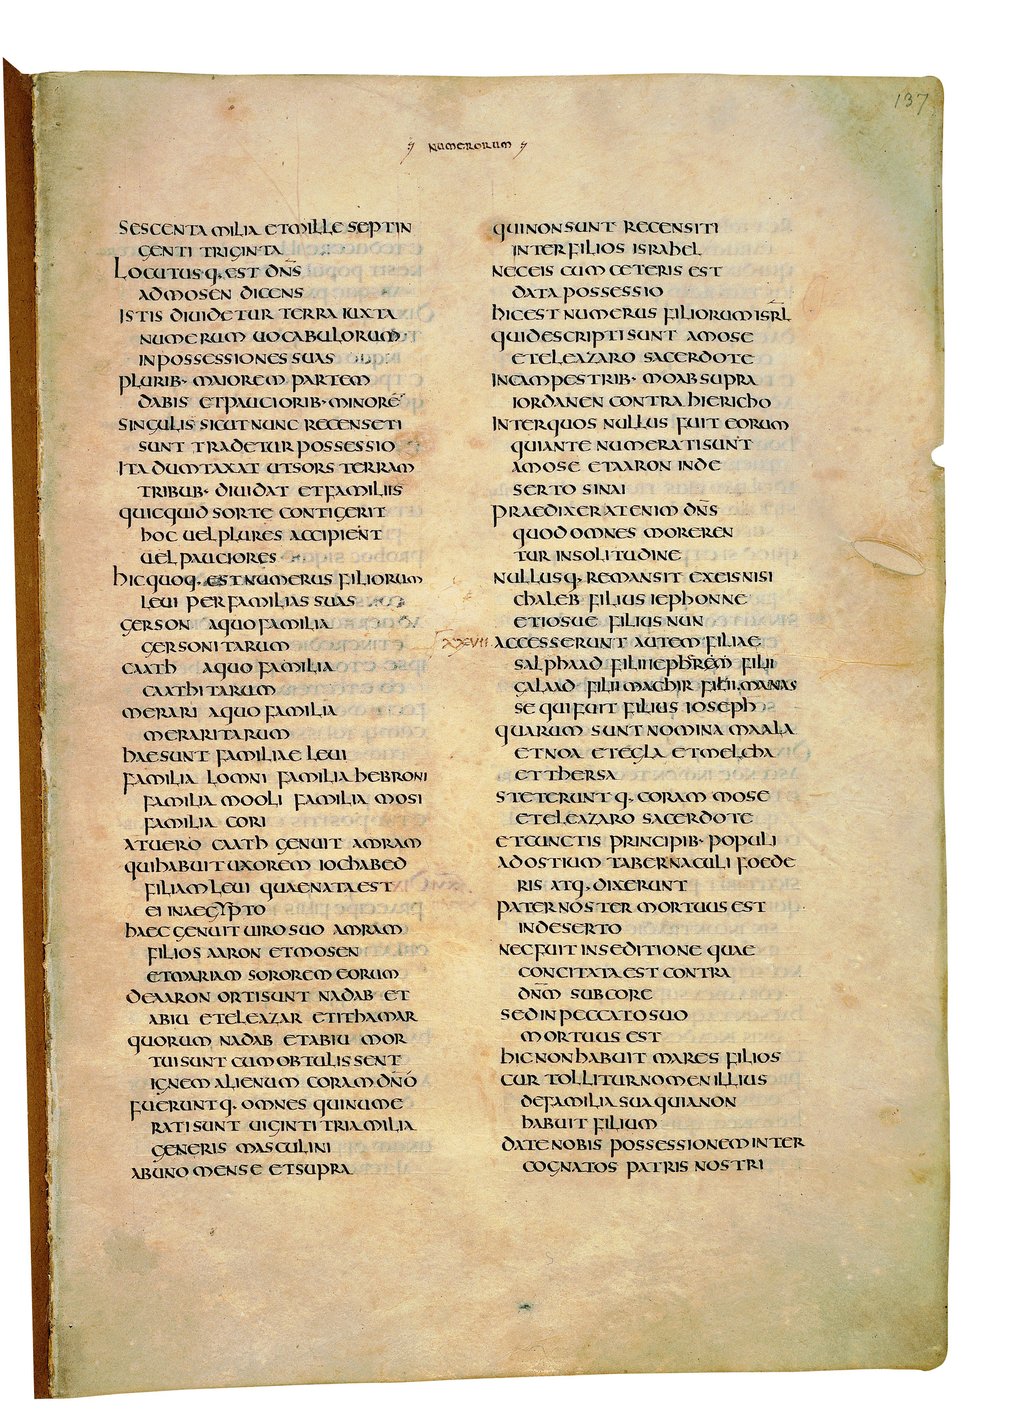 137
NUMERORUM
SESCENTA MILIA ET MILLE SEPTIN
GENTI TRIGINTA
LOCUTUSQ. EST DN̄S
AD MOSEN DICENS
ISTIS DIUIDETUR TERRA IUXTA
NUMERUM UOCABULORUM
IN POSSESSIONES SUAS
PLURIB· MAIOREM PARTEM
DABIS ET PAUCIORIB· MINORĒ
SINGULIS SICUT NUNC RECENSETI
SUNT TRADETUR POSSESSIO
ITA DUMTAXAT UT SORS TERRAM
TRIBUB· DIUIDAT ET FAMILIIS
QUICQUID SORTE CONTIGERIT
HOC UEL PLURES ACCIPIENT
UEL PAUCIORES
HIC QUOQ. EST NUMERUS FILIORUM
LEUI PER FAMILIAS SUAS
GERSON A QUO FAMILIA
GERSONITARUM
CAATH A QUO FAMILIA
CAATHITARUM
MERARI A QUO FAMILIA
MERARITARUM
HAE SUNT FAMILIAE LEUI
FAMILIA LOMNI FAMILIA HEBRONI
FAMILIA MOOLI FAMILIA MOSI
FAMILIA CORI
AT UERO CAATH GENUIT AMRAM
QUI HABUIT UXOREM IOCHABED
FILIAM LEUI QUAE NATA EST
EI IN AEGYPTO
HAEC GENUIT UIRO SUO AMRAM
FILIOS AARON ET MOSEN
ET MARIAM SOROREM EORUM
DE AARON ORTI SUNT NADAB ET
ABIU ET ELEAZAR ET ITHAMAR
QUORUM NADAB ET ABIU MOR
TUI SUNT CUM OBTULISSENT
IGNEM ALIENUM CORAM DN̄O
FUERUNTQ. OMNES QUI NUME
RATI SUNT UIGINTI TRIA MILIA
GENERIS MASCULINI
AB UNO MENSE ET SUPRA
QUI NON SUNT RECENSITI
INTER FILIOS ISRAHEL
NEC EIS CUM CETERIS EST
DATA POSSESSIO
HIC EST NUMERUS FILIORUM ISRL̄
QUI DESCRIPTI SUNT A MOSE
ET ELEAZARO SACERDOTE
IN CAMPESTRIB· MOAB SUPRA
IORDANEN CONTRA HIERICHO
INTER QUOS NULLUS FUIT EORUM
QUI ANTE NUMERATI SUNT
A MOSE ET AARON IN DE
SERTO SINAI
PRAEDIXERAT ENIM DN̄S
QUOD OMNES MOREREN
TUR IN SOLITUDINE
NULLUSQ. REMANSIT EX EIS NISI
CHALEB FILIUS IEPHONNE
ET IOSUE FILIUS NUN
XXVII ACCESSERUNT AUTEM FILIAE
SALPHAAD FILII EPHREM FILII
GALAAD FILII MACHIR FILII MANAS
SE QUI FUIT FILIUS IOSEPH
QUARUM SUNT NOMINA MAALA
ET NOA ET EGLA ET MELCHA
ET THERSA
STETERUNTQ. CORAM MOSE
ET ELEAZARO SACERDOTE
ET CUNCTIS PRINCIPIB· POPULI
AD OSTIUM TABERNACULI FOEDE
RIS ATQ. DIXERUNT
PATER NOSTER MORTUUS EST
IN DESERTO
NEC FUIT IN SEDITIONE QUAE
CONCITATA EST CONTRA
DN̄M SUB CORE
SED IN PECCATO SUO
MORTUUS EST
HIC NON HABUIT MARES FILIOS
CUR TOLLITUR NOMEN ILLIUS
DE FAMILIA SUA QUIA NON
HABUIT FILIUM
DATE NOBIS POSSESSIONEM INTER
COGNATOS PATRIS NOSTRI